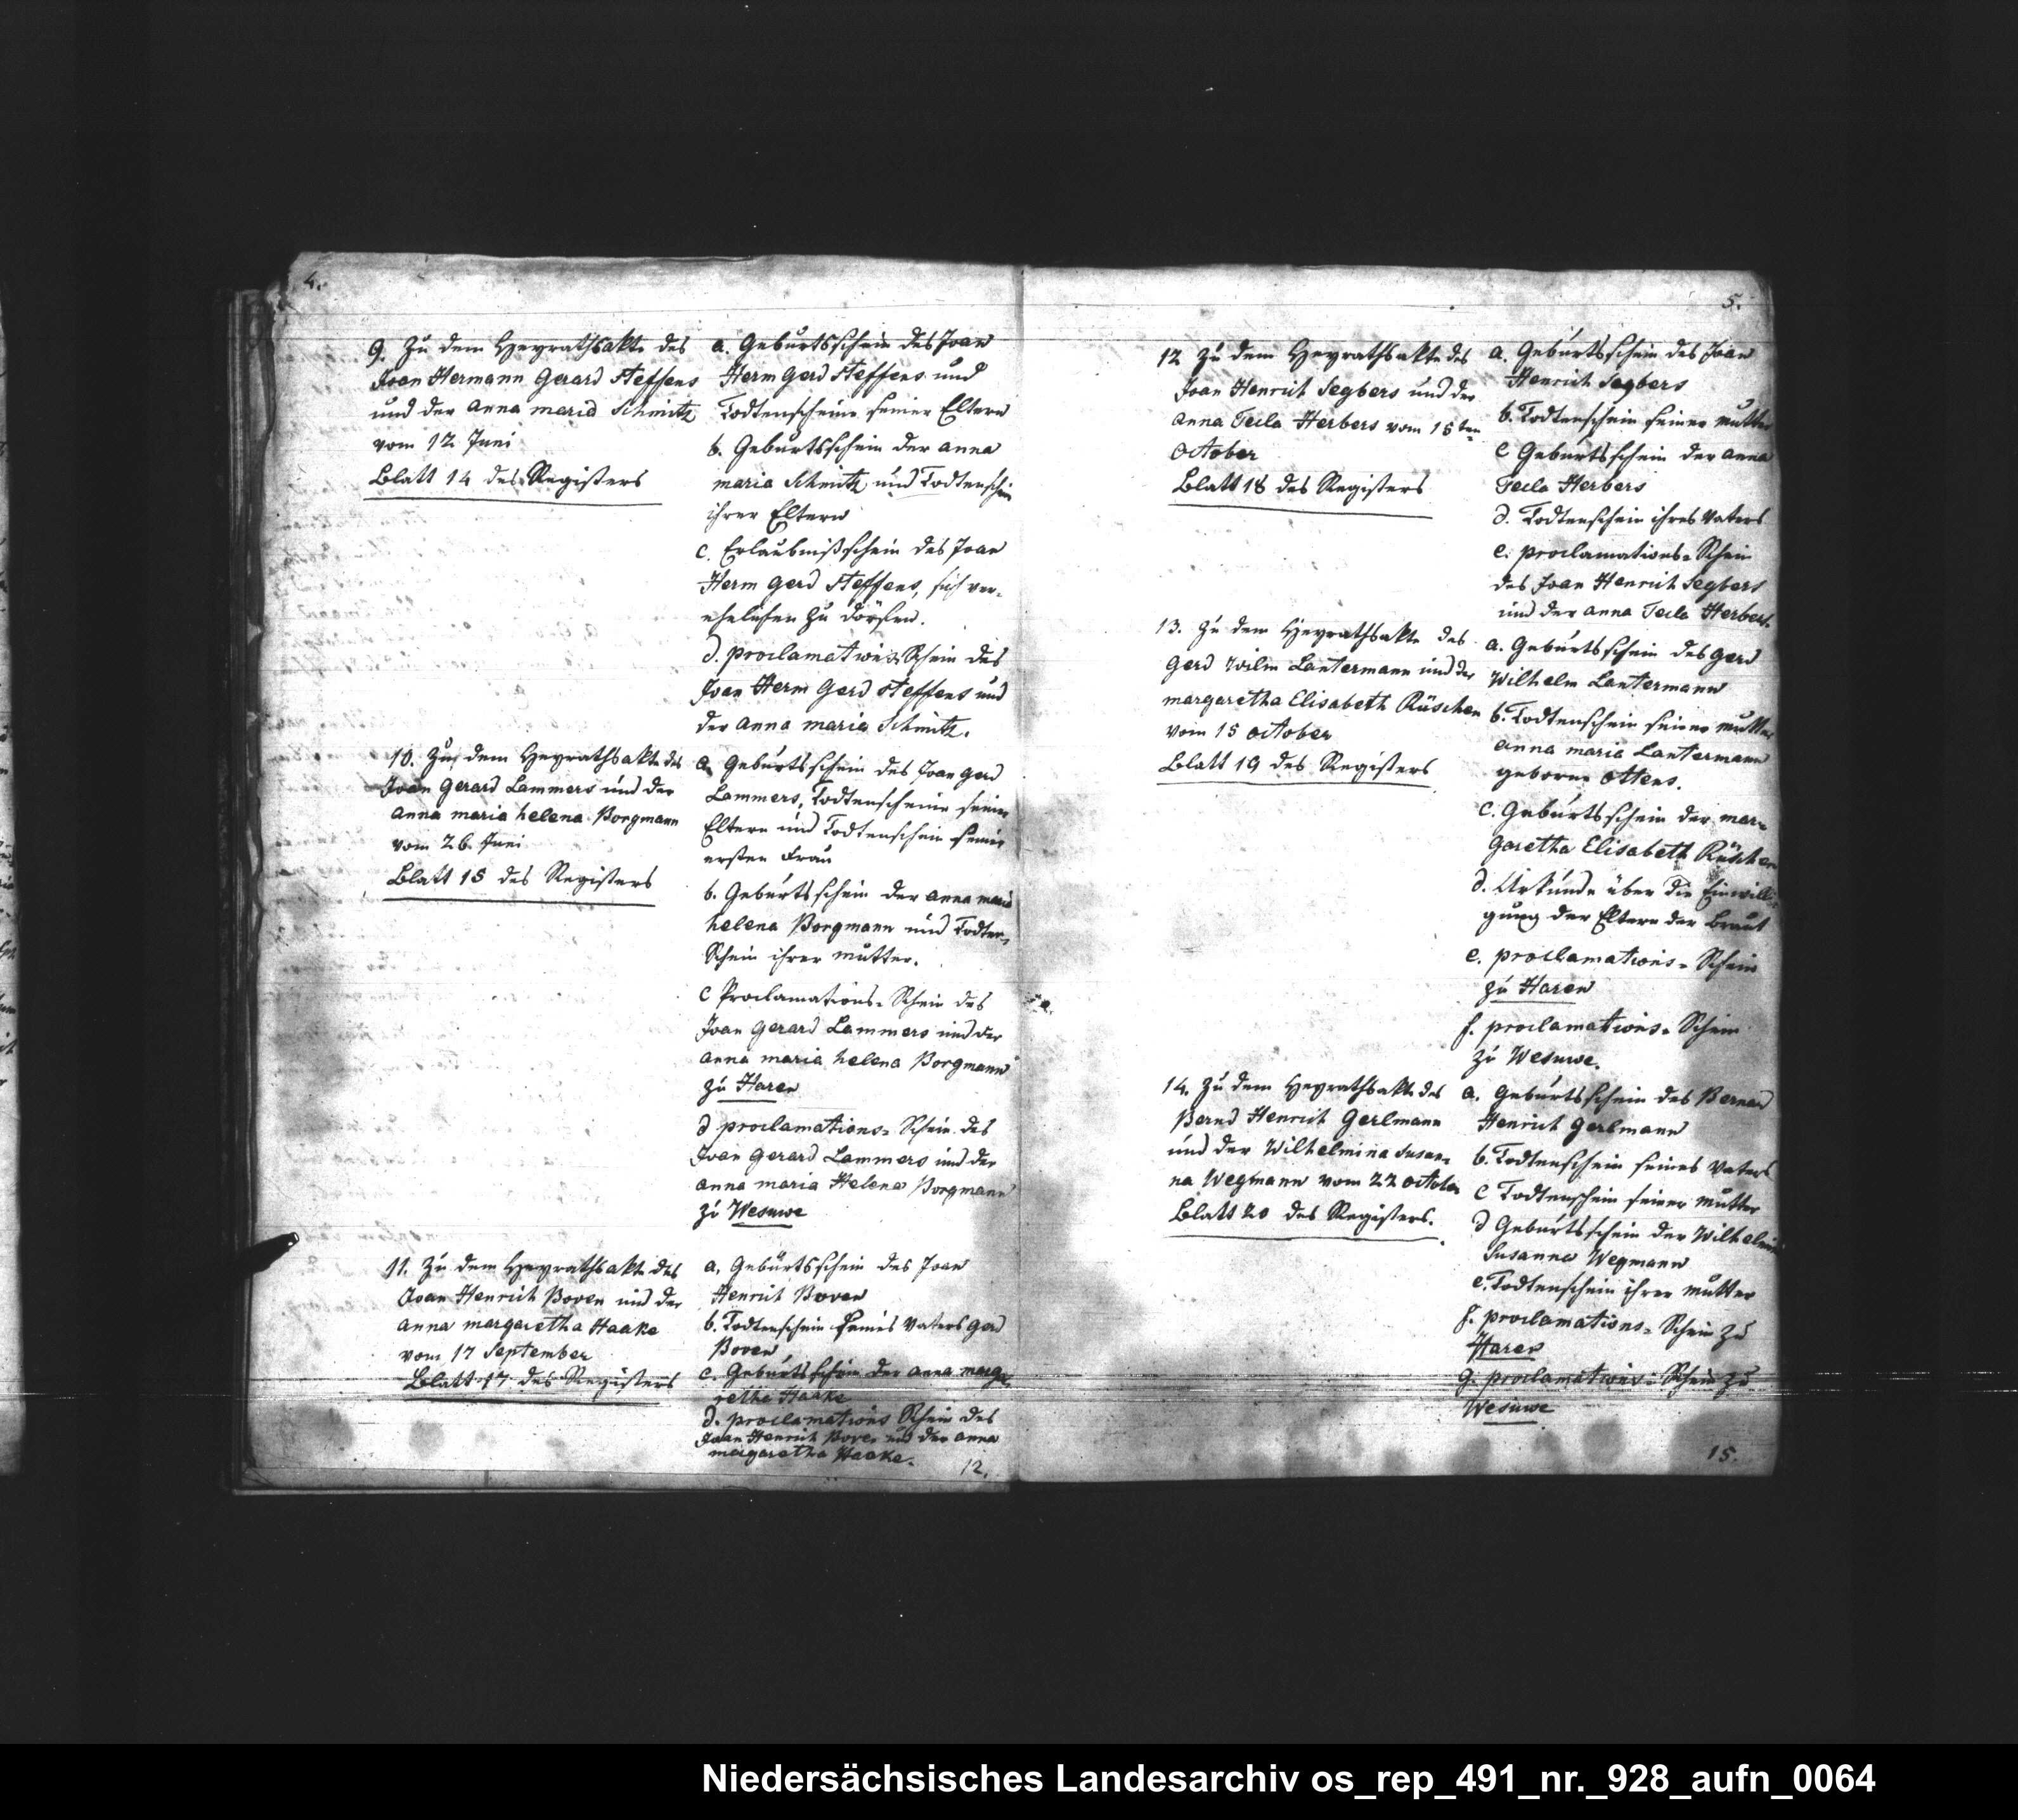 4.
9. Zu dem Heyrathsakte des
Joan Hermann Gerard Steffens
und der anna maria Schmitz
vom 12 Juni
Blatt 14 des Registers
a. Geburtsschein des Joan
Herm Gerd Steffens und
Todtenscheine seiner Eltern
b. Geburtsschein der anna
maria Schmitz und Todtenschein
ihrer Eltern
c. Erlaubnißschein des Joan
Herm Gerd Steffens, sich ver-
ehelichen zu dörfen.
d. proclamations Schein des
Joan Herm Gerd Steffens und
der anna maria Schmitz.
10. Zu dem Heyrathsakte des
Joan Gerard Lammers und der
anna maria helena Borgmann
vom 26. Juni
Blatt 15 des Registers
a. Geburtsschein des Joan Gerd
Lammers, Todtenscheine seiner
Eltern und Todtenschein seiner
ersten Frau
b. Geburtsschein der anna maria
helena Borgmann und Todten-
Schein ihrer mutter.
c Proclamations-Schein des
Joan Gerard Lammers und der
anna maria helena Borgmann
zu Haren
d proclamations-Schein des
Joan Gerard Lammers und der
anna maria Helena Borgmann
zu Wesuwe
11. Zu dem Heyrathsakte des
Joan Henrich Boven und der
anna margaretha Haake
vom 17 September
Blatt 17 des Registers
a. Geburtsschein des Joan
Henrich Boven
b. Todtenschein seines Vaters Gerd
Boven
c. Geburtsschein der anna marga-
retha Haake
d. proclamations Schein des
Joan Henrich Boven und der anna
margaretha Haake.
12.
5.
12 Zu dem Heyrathsakte des
Joan Henrich Segbers und der
anna Tecla Herbers vom 15ten
October
Blatt 18 des Registers
a. Geburtsschein des Joan
Henrich Segbers
b. Todtenschein seiner mutter
c Geburtsschein der anna
Tecla Herbers
d. Todtenschein ihres Vaters
e. proclamations-Schein
des Joan Henrich Segbers
und der anna Tecla Herbers.
13. Zu dem Heyrathsakte des
Gerd Wilm Lantermann und der
margaretha Elisabeth Rüschen
vom 15 october
Blatt 19 des Registers
a. Geburtsschein des Gerd
Wilhelm Lantermann
b. Todtenschein seiner mutter
anna maria Lantermann
geborne Ottens.
c. Geburtsschein der mar-
garetha Elisabeth Rüschen
d. Urkunde über die Einwilli-
gung der Eltern der Braut
e. proclamations-Schein
zu Haren
f. proclamations-Schein
zu Wesuwe.
14. Zu dem Heyrathsakte des
Bernd Henrich Gerlmann
und der Wilhelmina Susan-
na Wegmann vom 22 october
Blatt 20 des Registers.
a. Geburtsschein des Bernard
Henrich Gerlmann
b. Todtenschein seines Vaters
c Todtenschein seiner mutter
d Geburtsschein der Wilhelmina
Susanna Wegmann
e. Todtenschein ihrer mutter
f. proclamations-Schein zu
Haren
g. proclamations-Schein zu
Wesuwe
15.
Niedersächsisches Landesarchiv os_rep_491_nr._928_aufn_0064